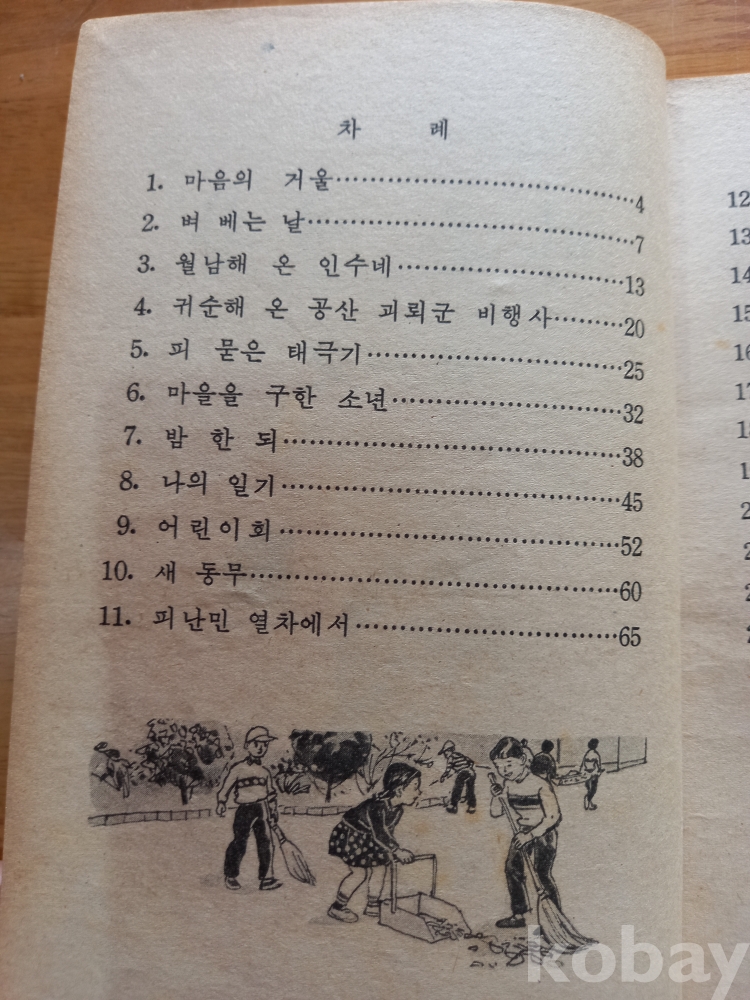 차 례
1. 마음의 거울……………………………4
2. 벼 베는 날……………………………7
3. 월남해 온 인수네……………………13
4. 귀순해 온 공산 괴뢰군 비행사………20
5. 피 묻은 태극기………………………25
6. 마을을 구한 소년……………………32
7. 밤 한 되………………………………38
8. 나의 일기……………………………45
9. 어린이회………………………………52
10. 새 동무………………………………60
11. 피난민 열차에서……………………65
12
13
14
15
16
17
kobay